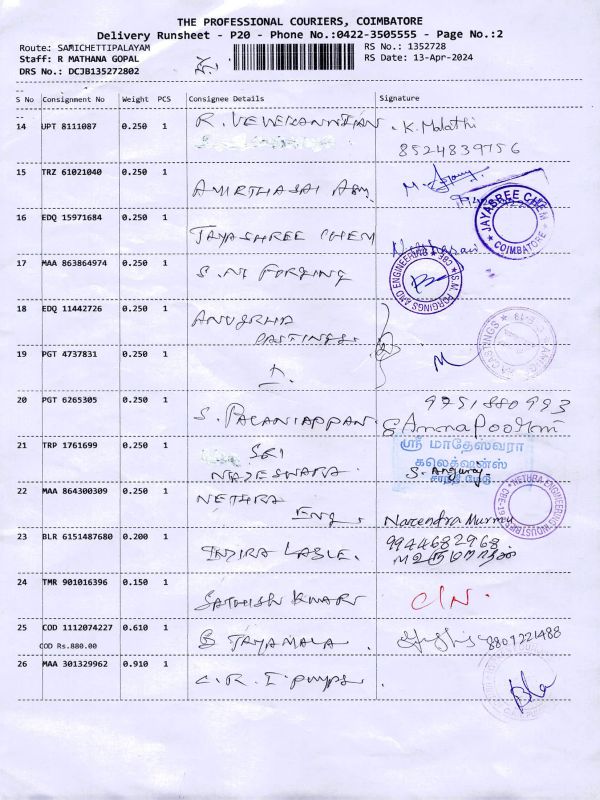 THE PROFESSIONAL COURIERS, COIMBATORE
Delivery Runsheet - P20 - Phone No.:0422-3505555 - Page No.:2
Route: SAMICHETTIPALAYAM RS No.: 1352728
Staff: R MATHANA GOPAL RS Date: 13-Apr-2024
DRS No.: DCJB135272802
S No Consignment No Weight PCS Consignee Details Signature
14 UPT 8111087 0.250 1 R. K. Malathi
8524839756
15 TRZ 61021040 0.250 1 AMIRTHASAI
16 EDQ 15971684 0.250 1 JAYASHREE CHEM
JAYASREE CHEM
COIMBATORE
17 MAA 863864974 0.250 1 S.M FORGING
S.M. FORGINGS AND ENGINEERING CBE
18 EDQ 11442726 0.250 1 ANUGRHA
CASTINGS
19 PGT 4737831 0.250 1
20 PGT 6265305 0.250 1 S. PALANIAPPAN 9751880993
21 TRP 1761699 0.250 1 SRI
ஸ்ரீ மாதேஸ்வரா
கலெக்ஷன்ஸ்
S. Anguraj
22 MAA 864300309 0.250 1 NETHRA
ENG, Narendra Murmu
NETHRA ENGINEERING INDUSTRIES
23 BLR 6151487680 0.200 1 INDIRA 9944682968
24 TMR 901016396 0.150 1 SATHISH KUMAR C/N.
25 COD 1112074227 0.610 1 B JAYAMALA 8807221488
COD Rs.880.00
26 MAA 301329962 0.910 1 C.R.I PUMPS